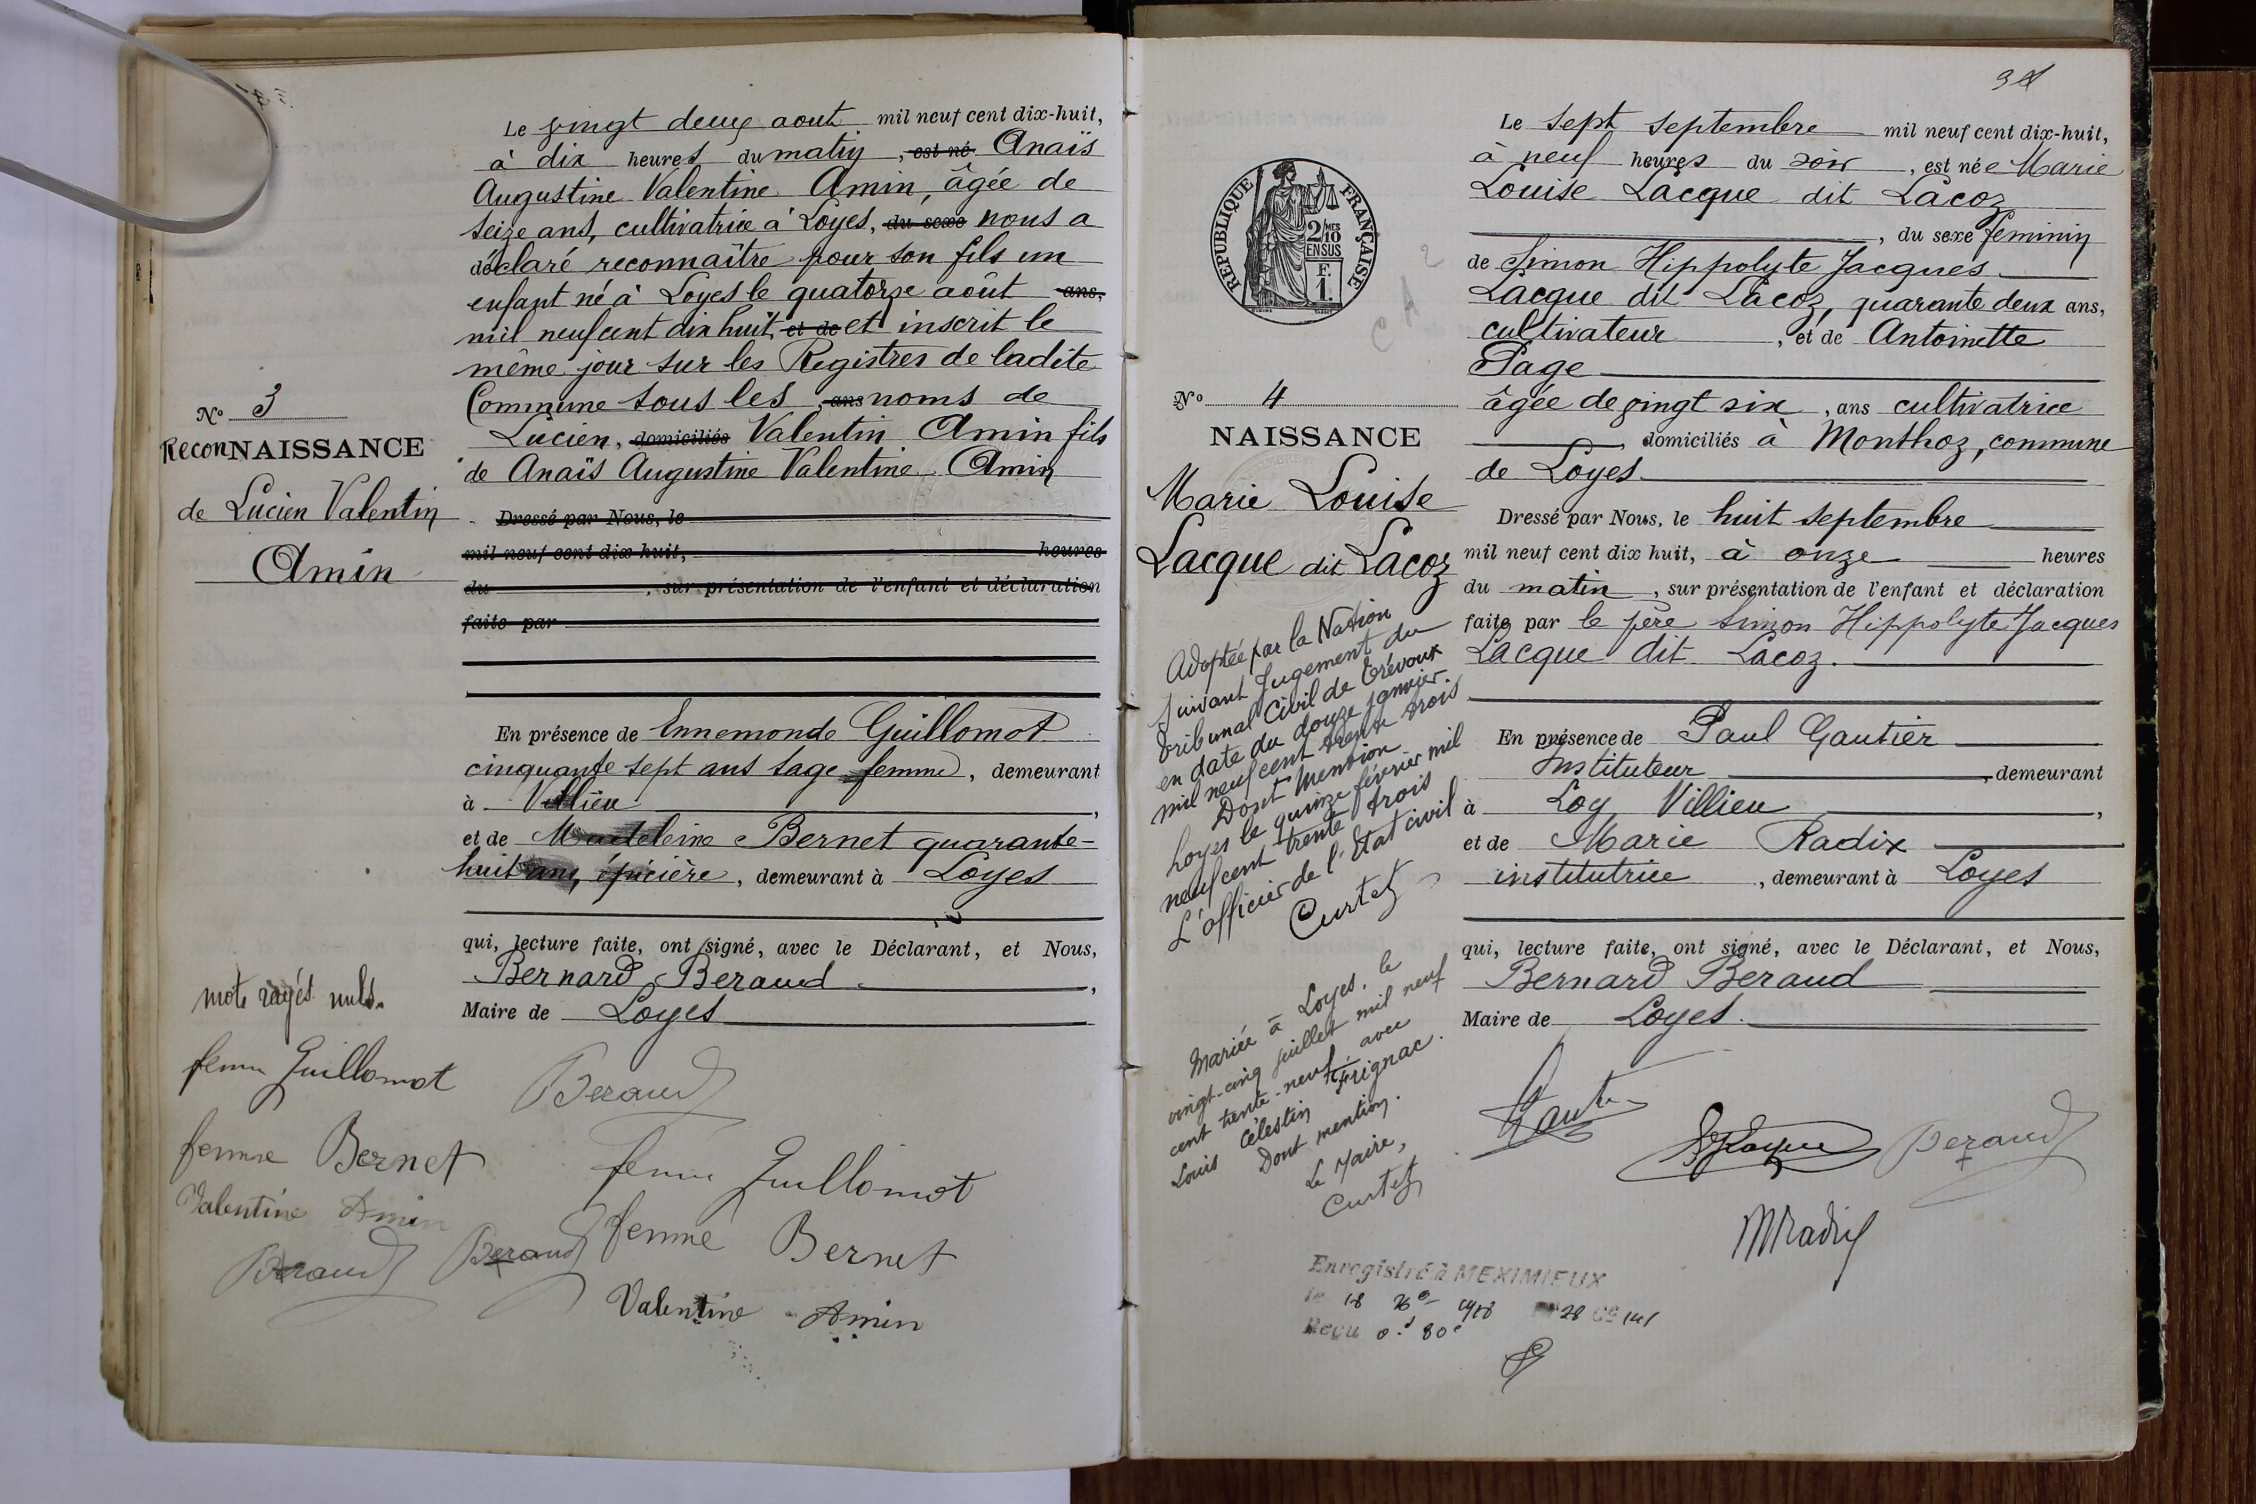 Le vingt deux aout mil neuf cent dix-huit,
à dix heures du matin, est né Anaïs
Augustine Valentine Amin, âgée de
seize ans, cultivatrice à Loyes, du sexe nous a
déclaré reconnaître pour son fils un
enfant né à Loyes le quatorze août ans,
mil neuf cent dix huit, et de et inscrit le
même jour sur les Registres de ladite
Commune sous les, ans noms de
Lucien, domiciliés Valentin Amin fils
de Anaïs Augustine Valentine Amin
Dressé par Nous, le
mil neuf cent dix huit, heures
du , sur présentation de l'enfant et déclaration
faite par
En présence de Ennemonde Guillomot
cinquante sept ans sage femme, demeurant
à Villieu ,
et de Madeleine Bernet quarante-
huit ans, épicière, demeurant à Loyes
qui, lecture faite, ont signé, avec le Déclarant, et Nous,
Bernard Beraud ,
Maire de Loyes
Nº 3
ReconNAISSANCE
de Lucien Valentin
Amin
mots rayés nuls.
femme Guillomot
femme Bernet
Valentine Amin
Beraud
Beraud
Beraud
femme Guillomot
femme Bernet
Valentine Amin
Le sept septembre mil neuf cent dix-huit,
à neuf heures du soir , est née Marie
Louise Lacque dit Lacoz
, du sexe feminin
de Simon Hippolyte Jacques
Lacque dit Lacoz, quarante deux ans,
cultivateur , et de Antoinette
Page
âgée de vingt six , ans cultivatrice
domiciliés à Monthoz, commune
de Loyes
Dressé par Nous, le huit septembre
mil neuf cent dix huit, à onze heures
du matin , sur présentation de l'enfant et déclaration
faite par le père Simon Hippolyte Jacques
Lacque dit Lacoz.
En présence de Paul Gautier
Instituteur , demeurant
à Loy Villieu ,
et de Marie Radix
institutrice , demeurant à Loyes
qui, lecture faite, ont signé, avec le Déclarant, et Nous,
Bernard Beraud
Maire de Loyes.
RÉPUBLIQUE FRANÇAISE
2/10 MES
EN SUS
F.
1.
Nº 4
NAISSANCE
Marie Louise
Lacque dit Lacoz
Adoptée par la Nation
suivant Jugement du
Tribunal Civil de Trévoux
en date du douze janvier
mil neuf cent trente trois
Dont Mention
Loyes le quinze février mil
neuf cent trente trois
L'officier de l'Etat civil
Curtet
Mariée à Loyes, le
vingt-cinq juillet mil neuf
cent trente-neuf, avec
Louis Célestin Frignac.
Dont mention.
Le Maire,
Curtet
Beraud
MRadix
Enregistré à MEXIMIEUX
le 18 1918
Reçu